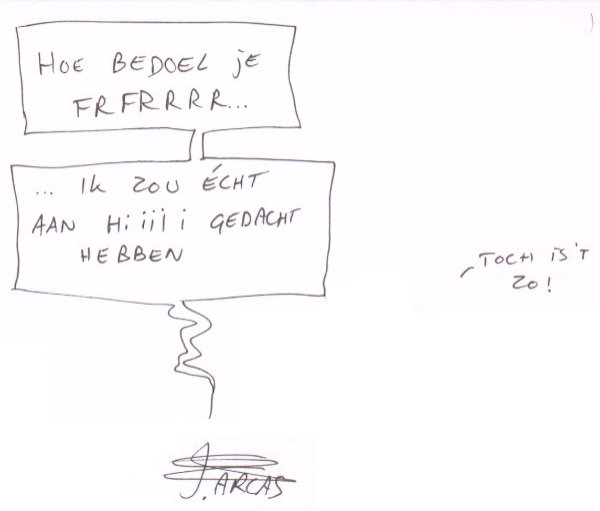 HOE BEDOEL jE
FRFRRRR...
... IK ZOU ÉCHT
AAN Hiiiii GEDACHT
HEBBEN
TOCH IS'T
ZO!
J. ARCAS